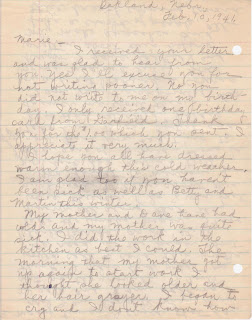 Oakland, Nebr.
Feb. 10, 1941
Marie —
I received your letter
and was glad to hear from
you. Yes I'll excuse you for
not writing sooner. No you
did not write to me on my birth-
day. I only received one birthday
card from . Thank
you for the which you sent. I
appreciate it very much.
I hope you all have dresses
warm enough this cold weather.
I am glad to you haven't
been sick as well as Betty and
Martin this winter.
My mother and Dave have had
colds and my mother was quite
sick. I did the work in the
kitchen as best I could. The
morning that my mother got
up again to start work I
thought she looked older and
her hair grayer. I began to
cry and I don't know how